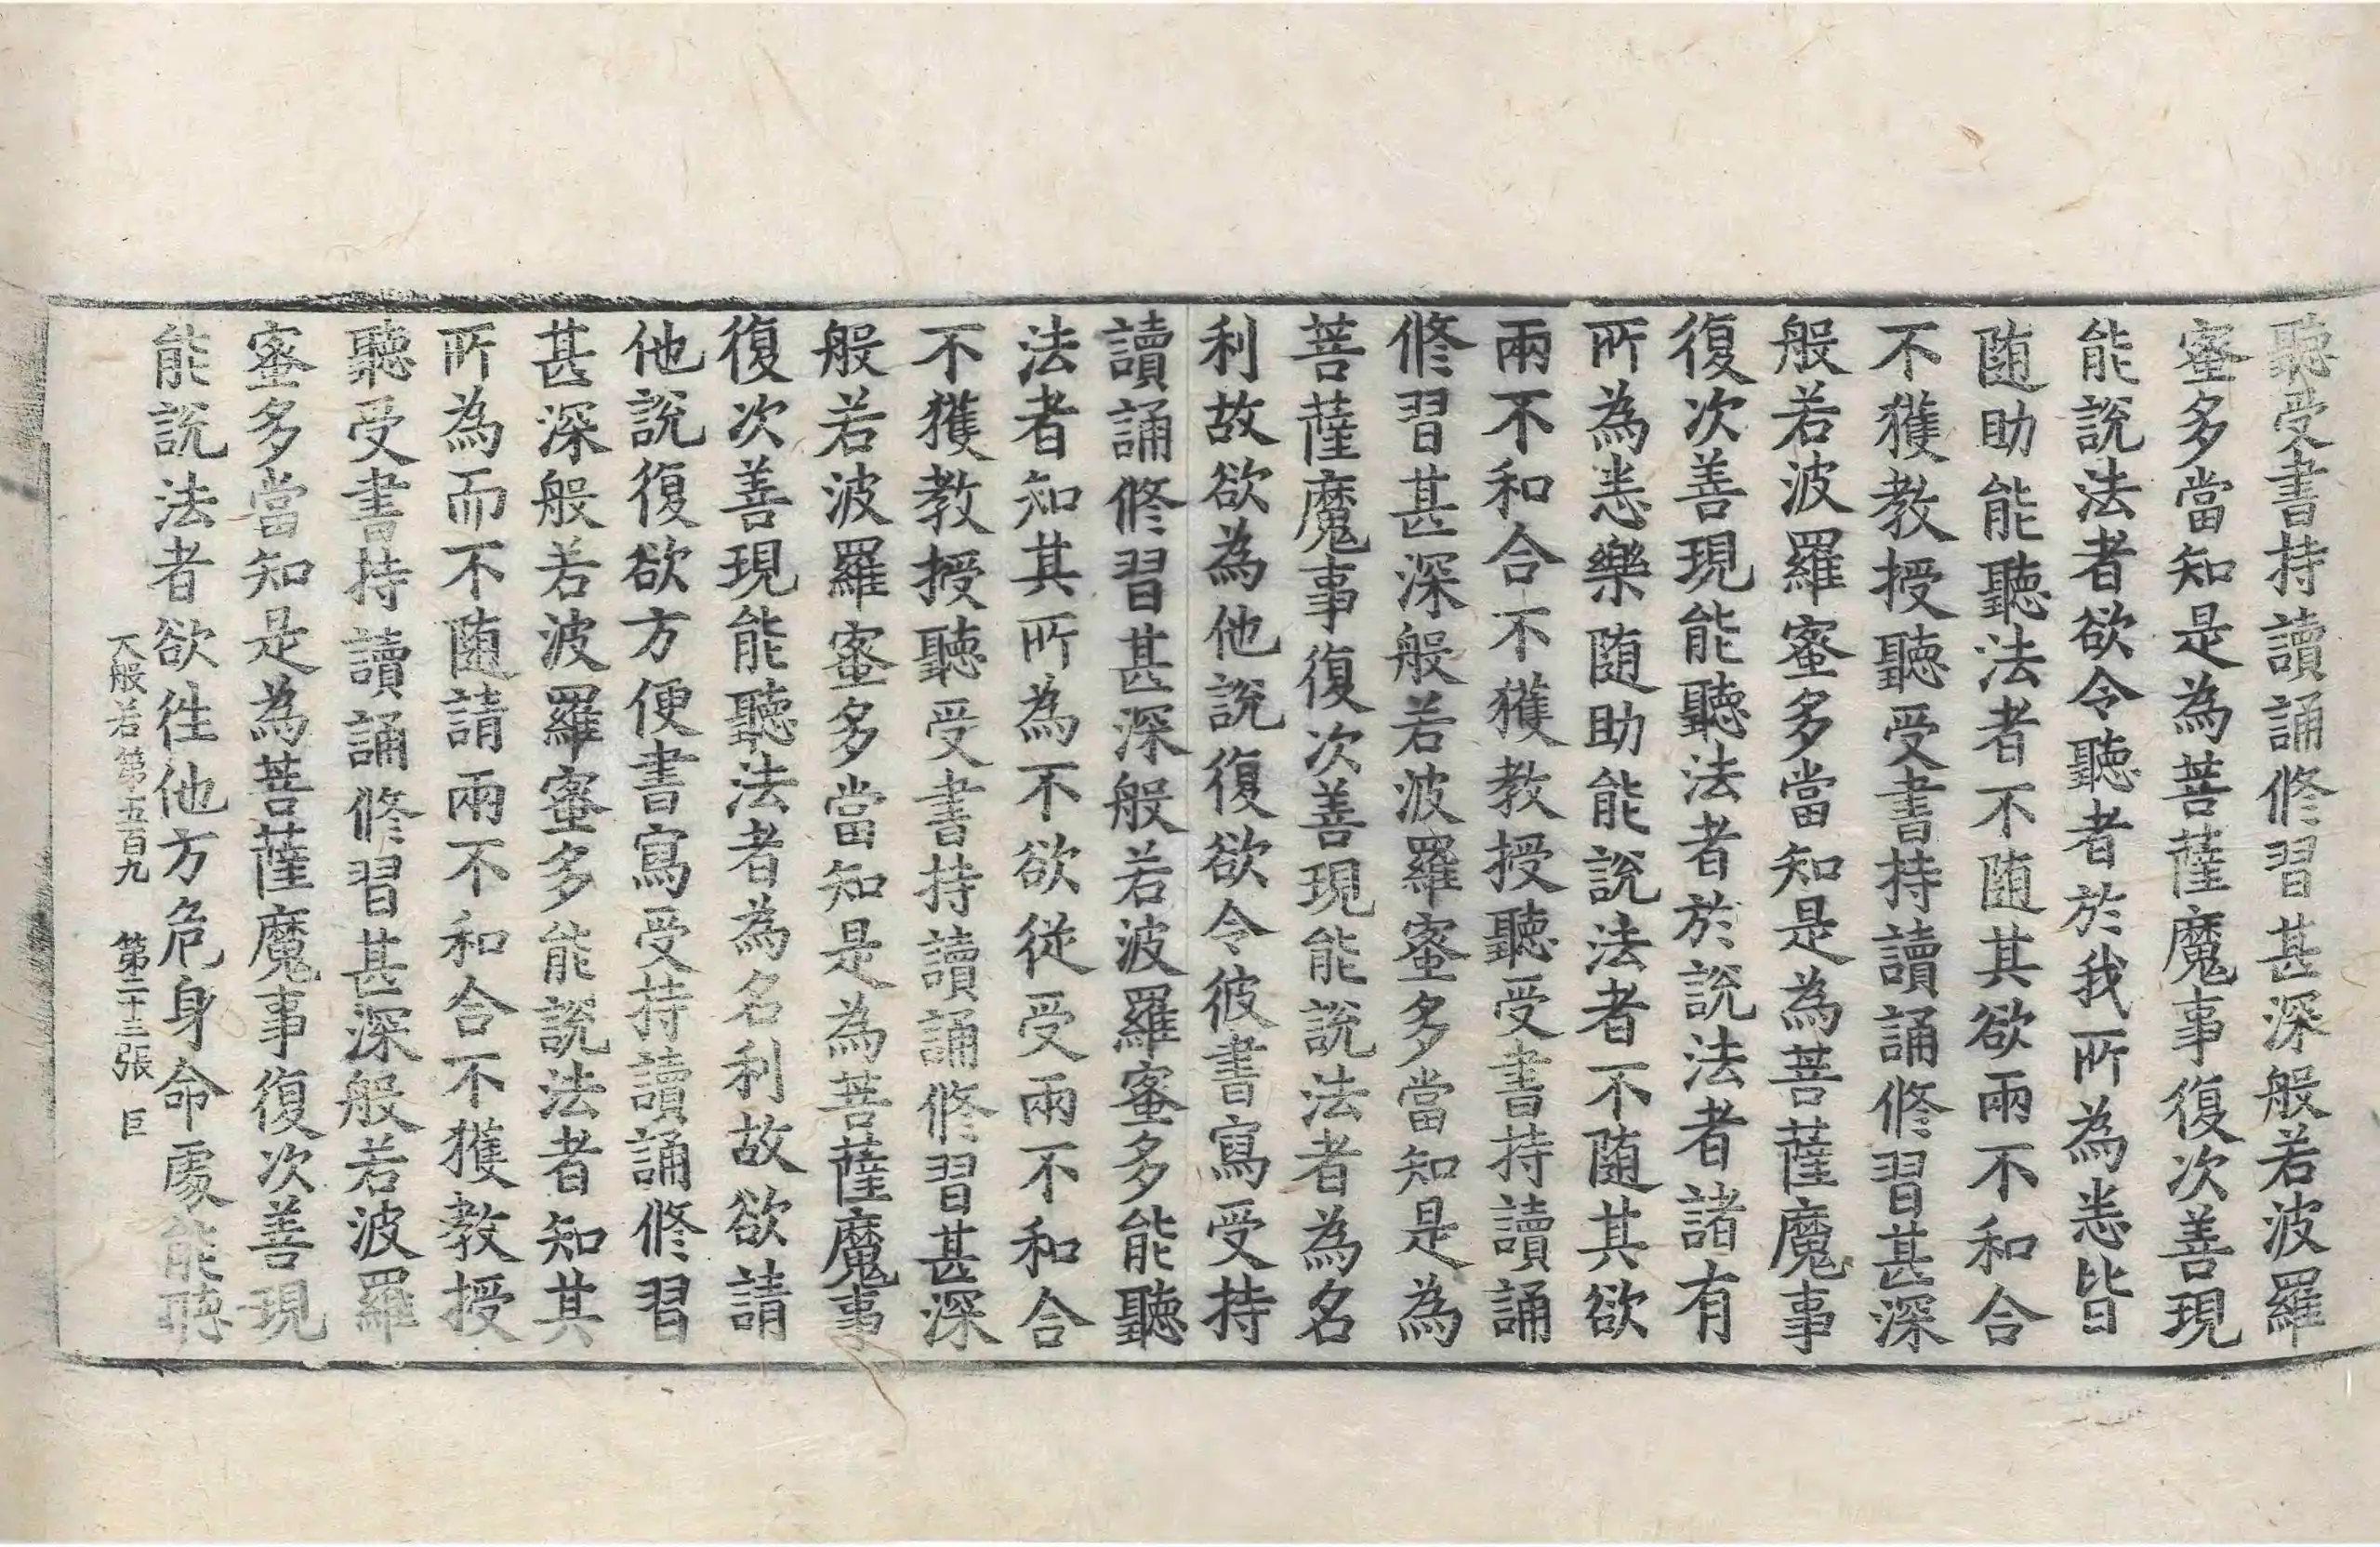 聽受書持讀誦修習甚深般若波羅
蜜多當知是為菩薩魔事復次善現
能說法者欲令聽者於我所為悉皆
随助能聽法者不随其欲兩不和合
不獲教授聽受書持讀誦修習甚深
般若波羅蜜多當知是為菩薩魔事
復次善現能聽法者於說法者諸有
所為悉樂随助能說法者不随其欲
兩不和合不獲教授聽受書持讀誦
修習甚深般若波羅蜜多當知是為
菩薩魔事復次善現能說法者為名
利故欲為他說復欲令彼書寫受持
讀誦修習甚深般若波羅蜜多能聽
法者知其所為不欲從受兩不和合
不獲教授聽受書持讀誦修習甚深
般若波羅蜜多當知是為菩薩魔事
復次善現能聽法者為名利故欲請
他說復欲方便書寫受持讀誦修習
甚深般若波羅蜜多能說法者知其
所為而不随請兩不和合不獲教授
聽受書持讀誦修習甚深般若波羅
蜜多當知是為菩薩魔事復次善現
能說法者欲往他方危身命處能聽
大般若第五百九 第二十三張 巨